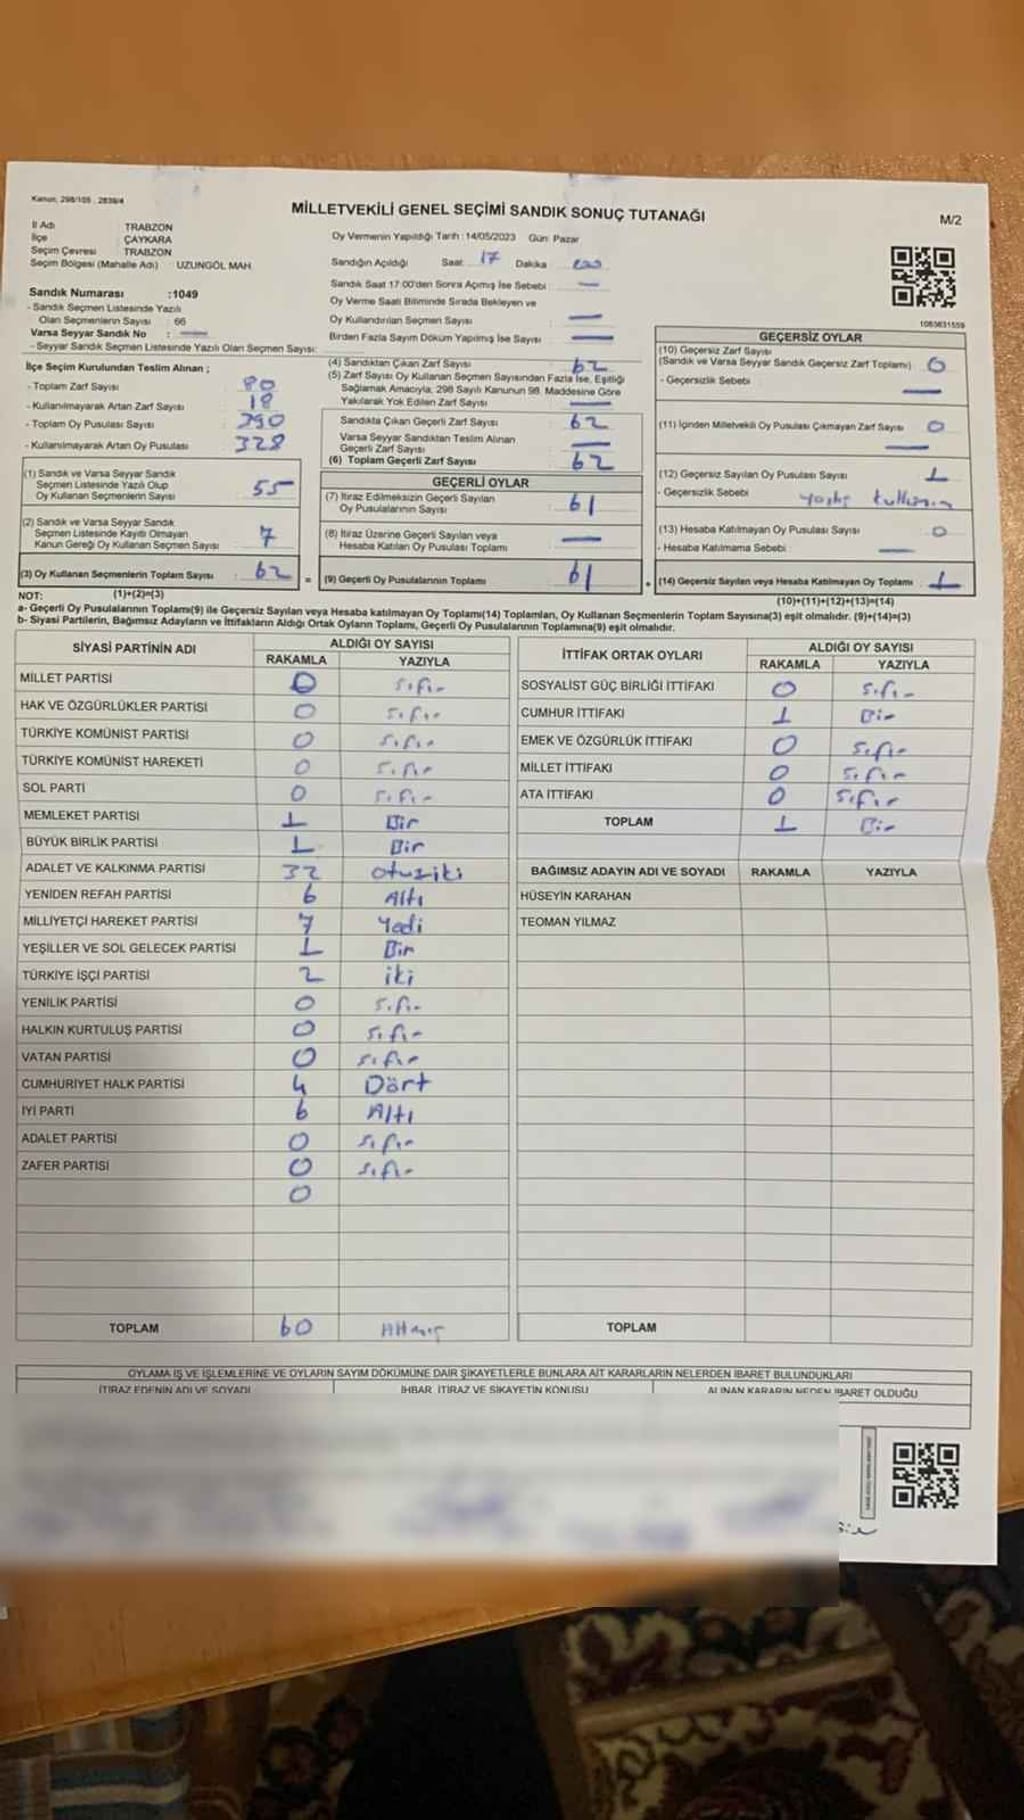 Kanun: 298/105 , 2839/4
MİLLETVEKİLİ GENEL SEÇİMİ SANDIK SONUÇ TUTANAĞI
M/2
İl Adı TRABZON
İlçe ÇAYKARA
Seçim Çevresi TRABZON
Seçim Bölgesi (Mahalle Adı) UZUNGÖL MAH.
Sandık Numarası :1049
- Sandık Seçmen Listesinde Yazılı
Olan Seçmenlerin Sayısı : 66
Varsa Seyyar Sandık No : —
- Seyyar Sandık Seçmen Listesinde Yazılı Olan Seçmen Sayısı:
İlçe Seçim Kurulundan Teslim Alınan ;
- Toplam Zarf Sayısı : 80
- Kullanılmayarak Artan Zarf Sayısı : 18
- Toplam Oy Pusulası Sayısı : 390
- Kullanılmayarak Artan Oy Pusulası : 328
(1) Sandık ve Varsa Seyyar Sandık
Seçmen Listesinde Yazılı Olup
Oy Kullanan Seçmenlerin Sayısı : 55
(2) Sandık ve Varsa Seyyar Sandık
Seçmen Listesinde Kayıtlı Olmayan
Kanun Gereği Oy Kullanan Seçmen Sayısı : 7
(3) Oy Kullanan Seçmenlerin Toplam Sayısı : 62
Oy Vermenin Yapıldığı Tarih : 14/05/2023 Gün: Pazar
Sandığın Açıldığı Saat: 17 Dakika
Sandık Saat 17:00'den Sonra Açılmış İse Sebebi : —
Oy Verme Saati Bitiminde Sırada Bekleyen ve
Oy Kullandırılan Seçmen Sayısı : —
Birden Fazla Sayım Döküm Yapılmış İse Sayısı : —
(4) Sandıktan Çıkan Zarf Sayısı : 62
(5) Zarf Sayısı Oy Kullanan Seçmen Sayısından Fazla İse, Eşitliği
Sağlamak Amacıyla, 298 Sayılı Kanunun 98. Maddesine Göre
Yakılarak Yok Edilen Zarf Sayısı : —
Sandıkta Çıkan Geçerli Zarf Sayısı : 62
Varsa Seyyar Sandıktan Teslim Alınan
Geçerli Zarf Sayısı : —
(6) Toplam Geçerli Zarf Sayısı : 62
GEÇERLİ OYLAR
(7) İtiraz Edilmeksizin Geçerli Sayılan
Oy Pusulalarının Sayısı : 61
(8) İtiraz Üzerine Geçerli Sayılan veya
Hesaba Katılan Oy Pusulası Toplamı : —
= (9) Geçerli Oy Pusulalarının Toplamı : 61
1083631559
GEÇERSİZ OYLAR
(10) Geçersiz Zarf Sayısı
(Sandık ve Varsa Seyyar Sandık Geçersiz Zarf Toplamı) : 0
- Geçersizlik Sebebi : —
(11) İçinden Milletvekili Oy Pusulası Çıkmayan Zarf Sayısı : 0
—
(12) Geçersiz Sayılan Oy Pusulası Sayısı : 1
- Geçersizlik Sebebi :
(13) Hesaba Katılmayan Oy Pusulası Sayısı : 0
- Hesaba Katılmama Sebebi : —
+ (14) Geçersiz Sayılan veya Hesaba Katılmayan Oy Toplamı : 1
NOT: (1)+(2)=(3)
(10)+(11)+(12)+(13)=(14)
a- Geçerli Oy Pusulalarının Toplamı(9) ile Geçersiz Sayılan veya Hesaba katılmayan Oy Toplamı(14) Toplamları, Oy Kullanan Seçmenlerin Toplam Sayısına(3) eşit olmalıdır. (9)+(14)=(3)
b- Siyasi Partilerin, Bağımsız Adayların ve İttifakların Aldığı Ortak Oyların Toplamı, Geçerli Oy Pusulalarının Toplamına(9) eşit olmalıdır.
SİYASİ PARTİNİN ADI ALDIĞI OY SAYISI
RAKAMLA YAZIYLA
MİLLET PARTİSİ 0 sıfır
HAK VE ÖZGÜRLÜKLER PARTİSİ 0 sıfır
TÜRKİYE KOMÜNİST PARTİSİ 0 sıfır
TÜRKİYE KOMÜNİST HAREKETİ 0 sıfır
SOL PARTİ 0 sıfır
MEMLEKET PARTİSİ 1 Bir
BÜYÜK BİRLİK PARTİSİ 1 Bir
ADALET VE KALKINMA PARTİSİ 32 otuziki
YENİDEN REFAH PARTİSİ 6 Altı
MİLLİYETÇİ HAREKET PARTİSİ 7 Yedi
YEŞİLLER VE SOL GELECEK PARTİSİ 1 Bir
TÜRKİYE İŞÇİ PARTİSİ 2 iki
YENİLİK PARTİSİ 0 sıfır
HALKIN KURTULUŞ PARTİSİ 0 sıfır
VATAN PARTİSİ 0 sıfır
CUMHURİYET HALK PARTİSİ 4 Dört
İYİ PARTİ 6 Altı
ADALET PARTİSİ 0 sıfır
ZAFER PARTİSİ 0 sıfır
0
TOPLAM 60 Altmış
İTTİFAK ORTAK OYLARI ALDIĞI OY SAYISI
RAKAMLA YAZIYLA
SOSYALİST GÜÇ BİRLİĞİ İTTİFAKI 0 sıfır
CUMHUR İTTİFAKI 1 Bir
EMEK VE ÖZGÜRLÜK İTTİFAKI 0 sıfır
MİLLET İTTİFAKI 0 sıfır
ATA İTTİFAKI 0 sıfır
TOPLAM 1 Bir
BAĞIMSIZ ADAYIN ADI VE SOYADI RAKAMLA YAZIYLA
HÜSEYİN KARAHAN
TEOMAN YILMAZ
TOPLAM
OYLAMA İŞ VE İŞLEMLERİNE VE OYLARIN SAYIM DÖKÜMÜNE DAİR ŞİKAYETLERLE BUNLARA AİT KARARLARIN NELERDEN İBARET BULUNDUKLARI
İTİRAZ EDENİN ADI VE SOYADI İHBAR, İTİRAZ VE ŞİKAYETİN KONUSU ALINAN KARARIN NEDEN İBARET OLDUĞU